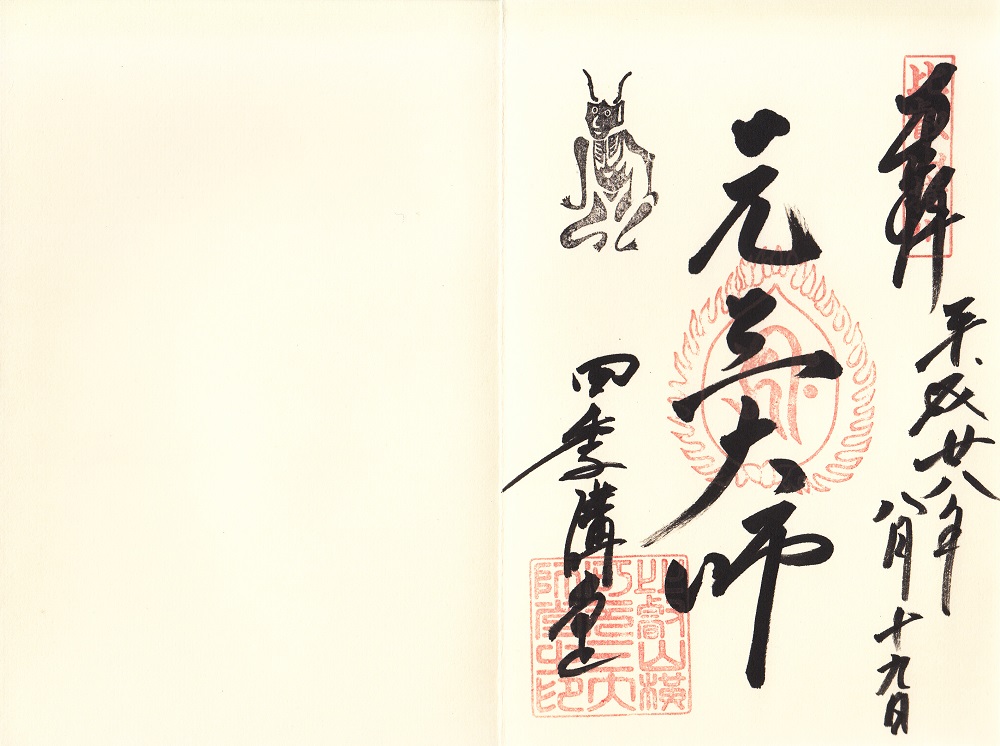 奉拝
平成廿八年
八月十九日
元三大師
四季講堂
比叡山横
川元三大
師堂之印